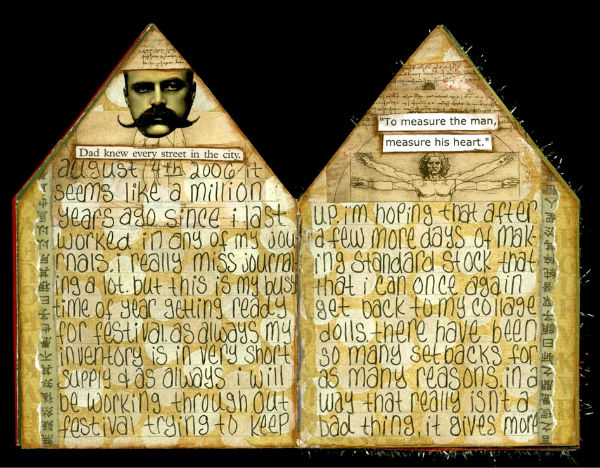 Dad knew every street in the city.
august 4th 2006 it
seems like a million
years ago since i last
worked in any of my jou
rnals. i really miss journal
ing a lot. but this is my busy
time of year getting ready
for festival. as always my
inventory is in very short
supply & as always i will
be working throughout
festival trying to keep
"To measure the man,
measure his heart."
up. i'm hoping that after
a few more days of mak-
ing standard stock that
that i can once again
get back to my collage
dolls. there have been
so many setbacks for
as many reasons. in a
way that really isn't a
bad thing. it gives more